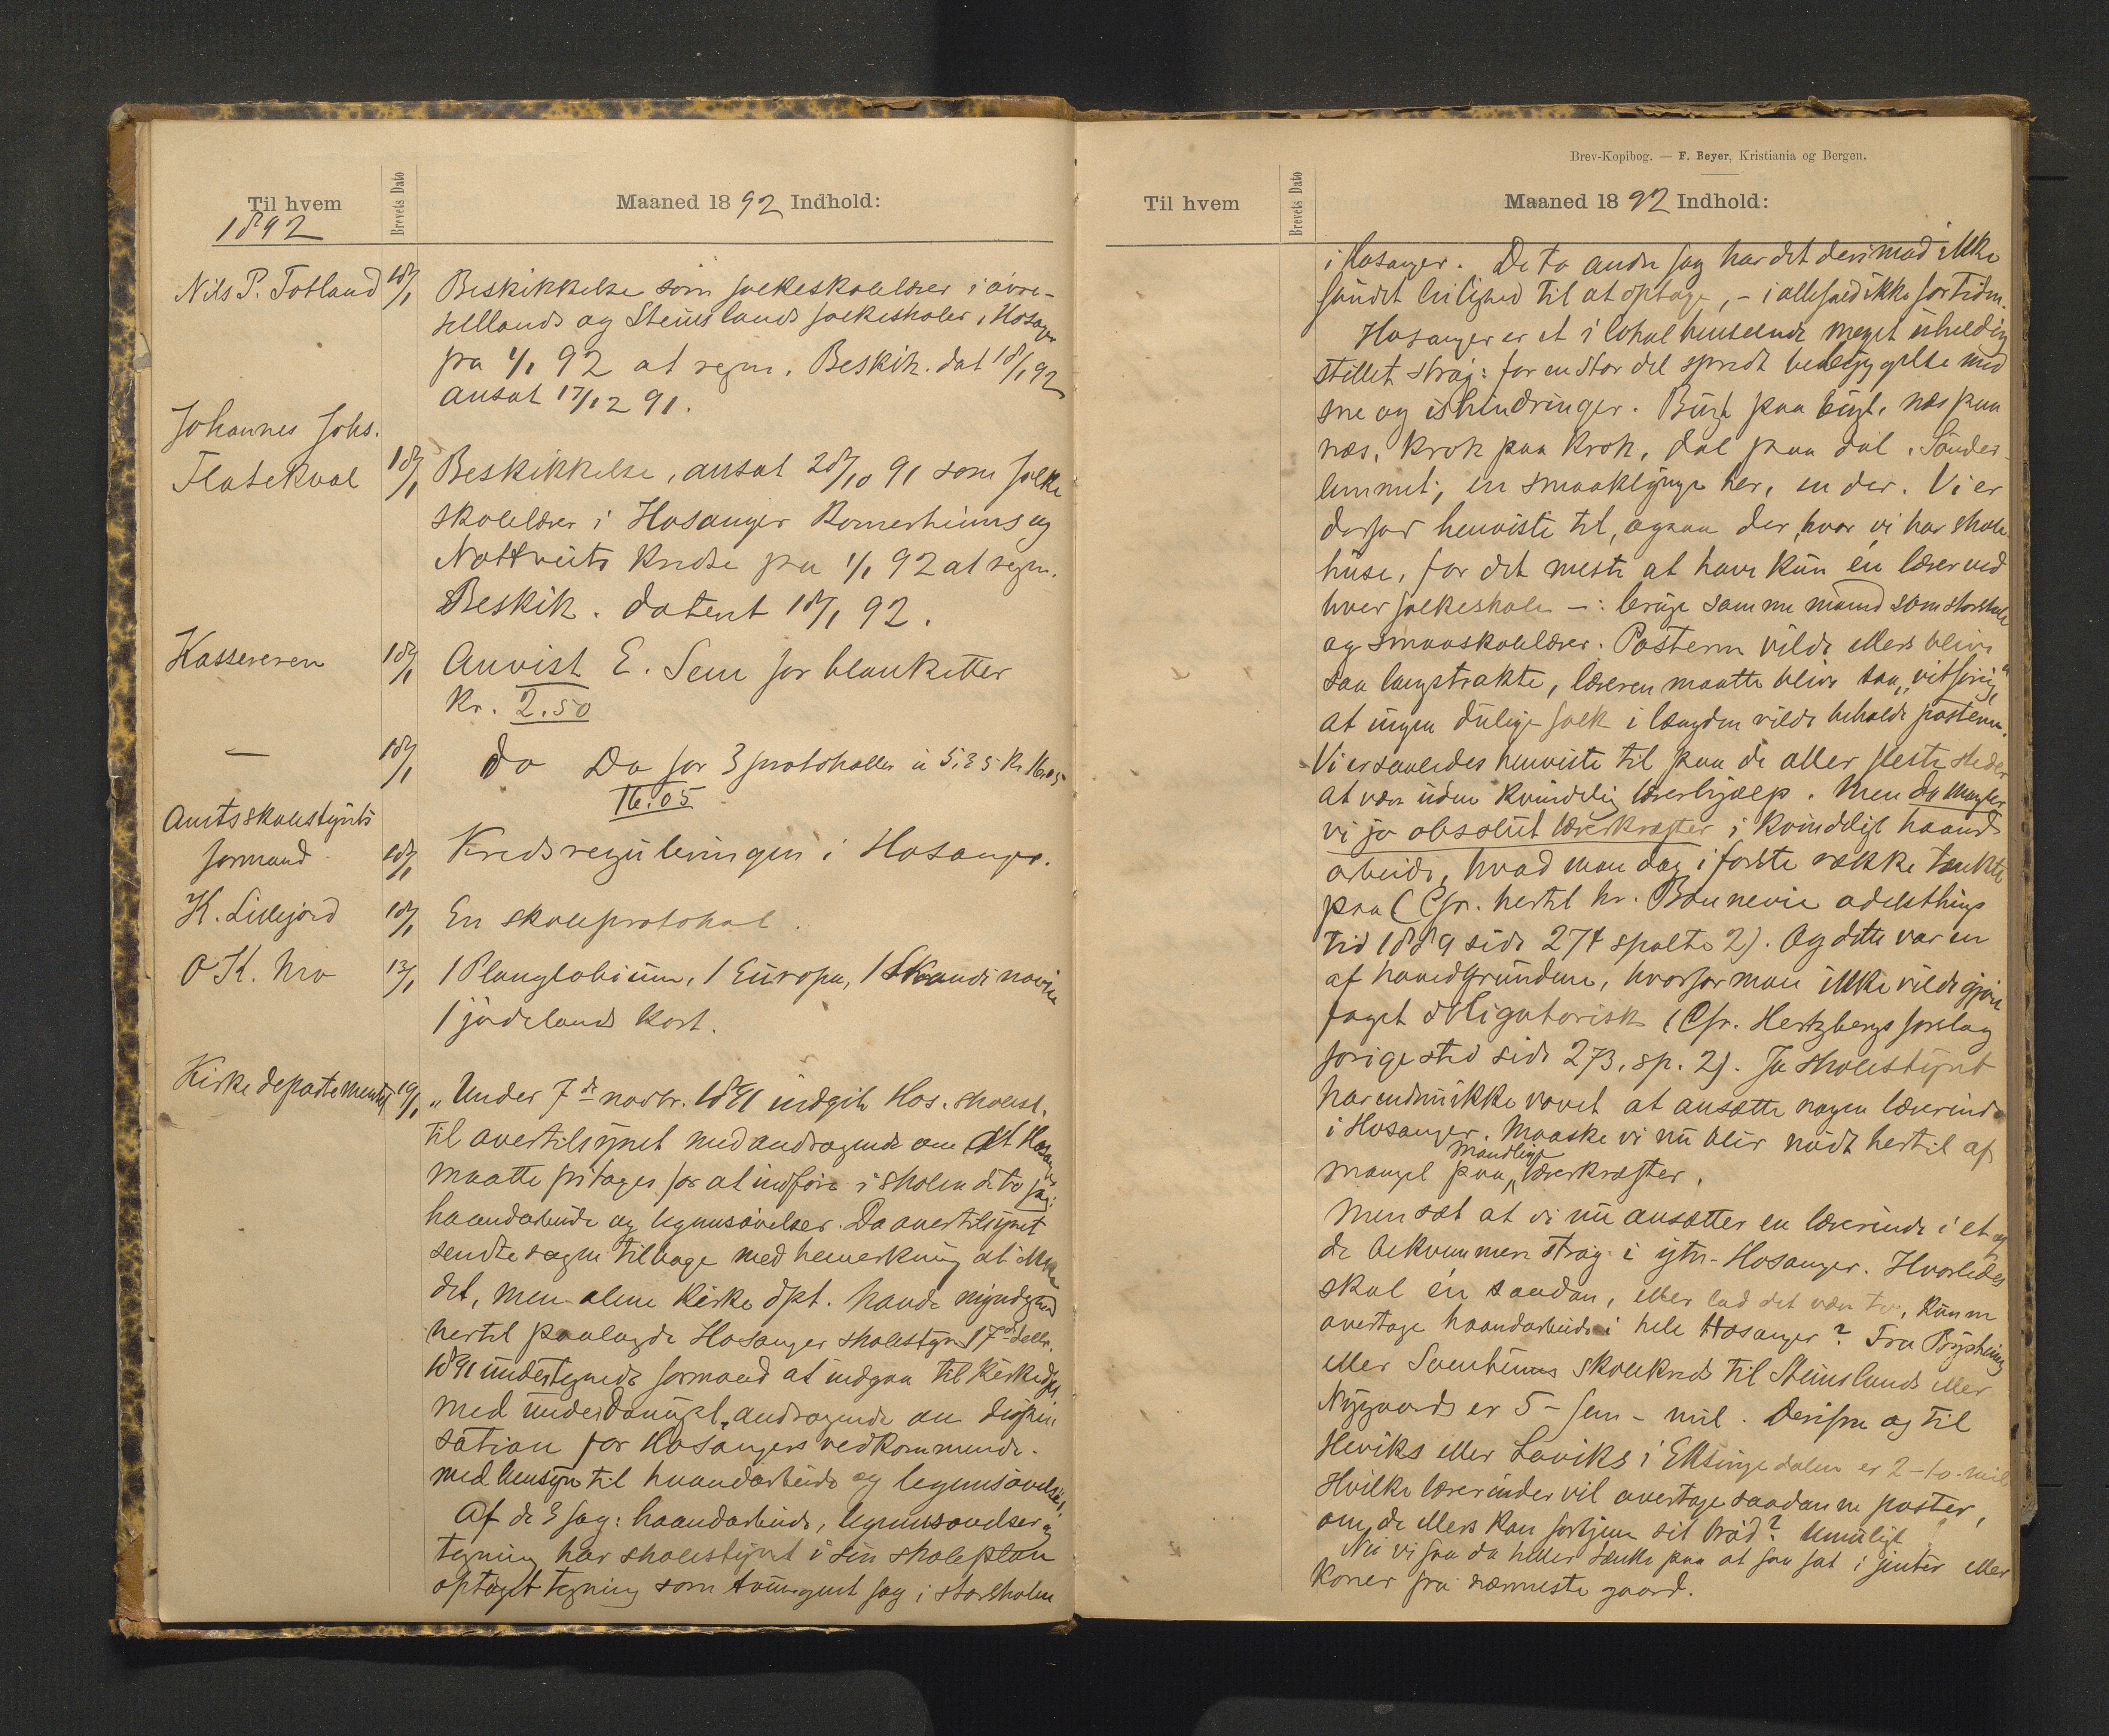 Til hvem
1892
Brevets Dato
Maaned 1892 Indhold:
Nils P. Totland 18/1 Beskikkelse som folkeskolelærer i øvre-
Ellands og Steinslands folkeskoler i Hosanger
fra 1/1 92 at regne. Beskik. dat 18/1 92
ansat 17/12 91.
Johannes Johs.
Flatekval 18/1 Beskikkelse, ansat 28/10 91 som folke
skolelærer i Hosanger Romerheims og
Nottveits kredse fra 1/1 92 at regne.
Beskik. datert 18/1 92.
Kassereren 18/1 Anvist E. Sem for blanketter
Kr. 2.50
— 18/1 do Do for 3 protokoller a 5.35 Kr. 16.05
16.05
Amtsskolestyrets
formand 18/1 Kredsreguleringen i Hosanger.
K. Lillejord 18/1 En skoleprotokol.
O K. Mo 13/1 1 Planglobium, 1 Europa, 1 Skandinavien
1 jødelands kart.
Kirkedepartementet 19/1 „Under 7de novbr. 1891 indgik Hos. skolest.
til overtilsynet med andragende om at Hosanger
maatte fritages for at indføre i skolen de to fag:
haandarbeide og legemsøvelser. Da overtilsynet
sendte sagen tilbage med bemerkning at ikke
det, men alene Kirkedpt. havde myndighed
hertil paalagde Hosanger skolestyr 17de decbr.
1891 undertegnede formand at indgaa til Kirkedpt.
med underdanigst andragende om dispen
sation for Hosangers vedkommende.
med hensyn til haandarbeide og legemsøvelser.
Af de 3 fag: haandarbeide, legemsøvelser og
tegning har skolestyret i sin skoleplan
optaget tegning som tvungent fag i storskolen
Brev-Kopibog. — F. Beyer, Kristiania og Bergen.
Til hvem
Brevets Dato
Maaned 1892 Indhold:
i Hosanger. De to andre fag har det derimod ikke
fundet leilighed til at optage, – i allefald ikke for tiden.
Hosanger er et i lokal henseende meget uheldig
stillet strøg: for en stor del spredt bebyggelse med
sne og ishindringer. Bugt paa bugt, næs paa
næs, krok paa krok, dal paa dal. Sønder-
lemmet; en smaaklynge her, en der. Vi er
derfor henviste til, ogsaa der, hvor vi har skole
huse, for det meste at have kun én lærer ved
hver folkeskole –: bruge samme mand som storskole
og smaaskolelærer. Posterne vilde ellers blive
saa langstrakte, læreren maatte blive saa „vitforig“,
at ingen dulige folk i længden vilde beholde posterne.
Vi er saaledes henviste til paa de aller fleste steder
at være uden kvindelig lærerhjælp. Men da mangler
vi jo absolut lærerkræfter i kvindeligt haand
arbeide, hvad man dog i første række tænkte
paa (Cfr. hertil hr. Bonnevie odelsthings
tid 1889 side 274 spalte 2). Og dette var en
af hovedgrundene, hvorfor man ikke vilde gjøre
faget obligatorisk (Cfr. Hertzbergs forslag
forige sted side 273, sp. 2). Ja skolestyret
har endnu ikke vovet at ansætte nogen lærerinde
i Hosanger. Maaske vi nu blir nødt hertil af
mangel paa mandlige lærerkræfter.
Men sæt at vi nu ansætter en lærerinde i et af
de bekvemmere strøg i ytre-Hosanger. Hvorledes
skal én saadan, eller lad det være to, kunne
overtage haandarbeide i hele Hosanger? Fra
eller skolekreds til Steinslands eller
Nygaards er 5 – fem – mil. Derifra og til
Høviks eller Laviks i Eksingedalen er 2 – to – mil
Hvilke lærerinder vil overtage saadanne poster,
om de ellers kan fortjene sit brød? Umuligt
Nei vi faa da heller tænke paa at faa fat i jenter eller
koner fra nærmeste gaard.